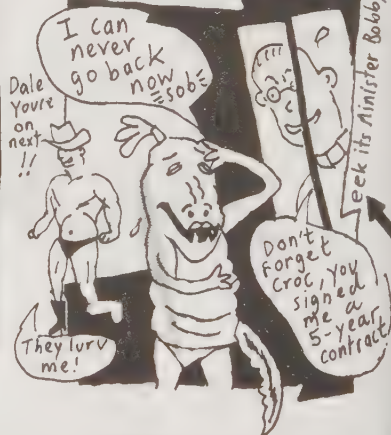 I can
never
go back
now
=sob=
Dale
Youre
on
next
!!
They lurv
me!
Don't
forget
Croc, you
signed
me a
5-year
contract
eek its Minister Bobb